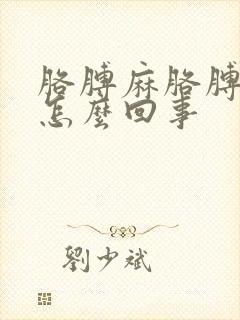 胳膊麻胳膊
怎麽回事
劉少斌